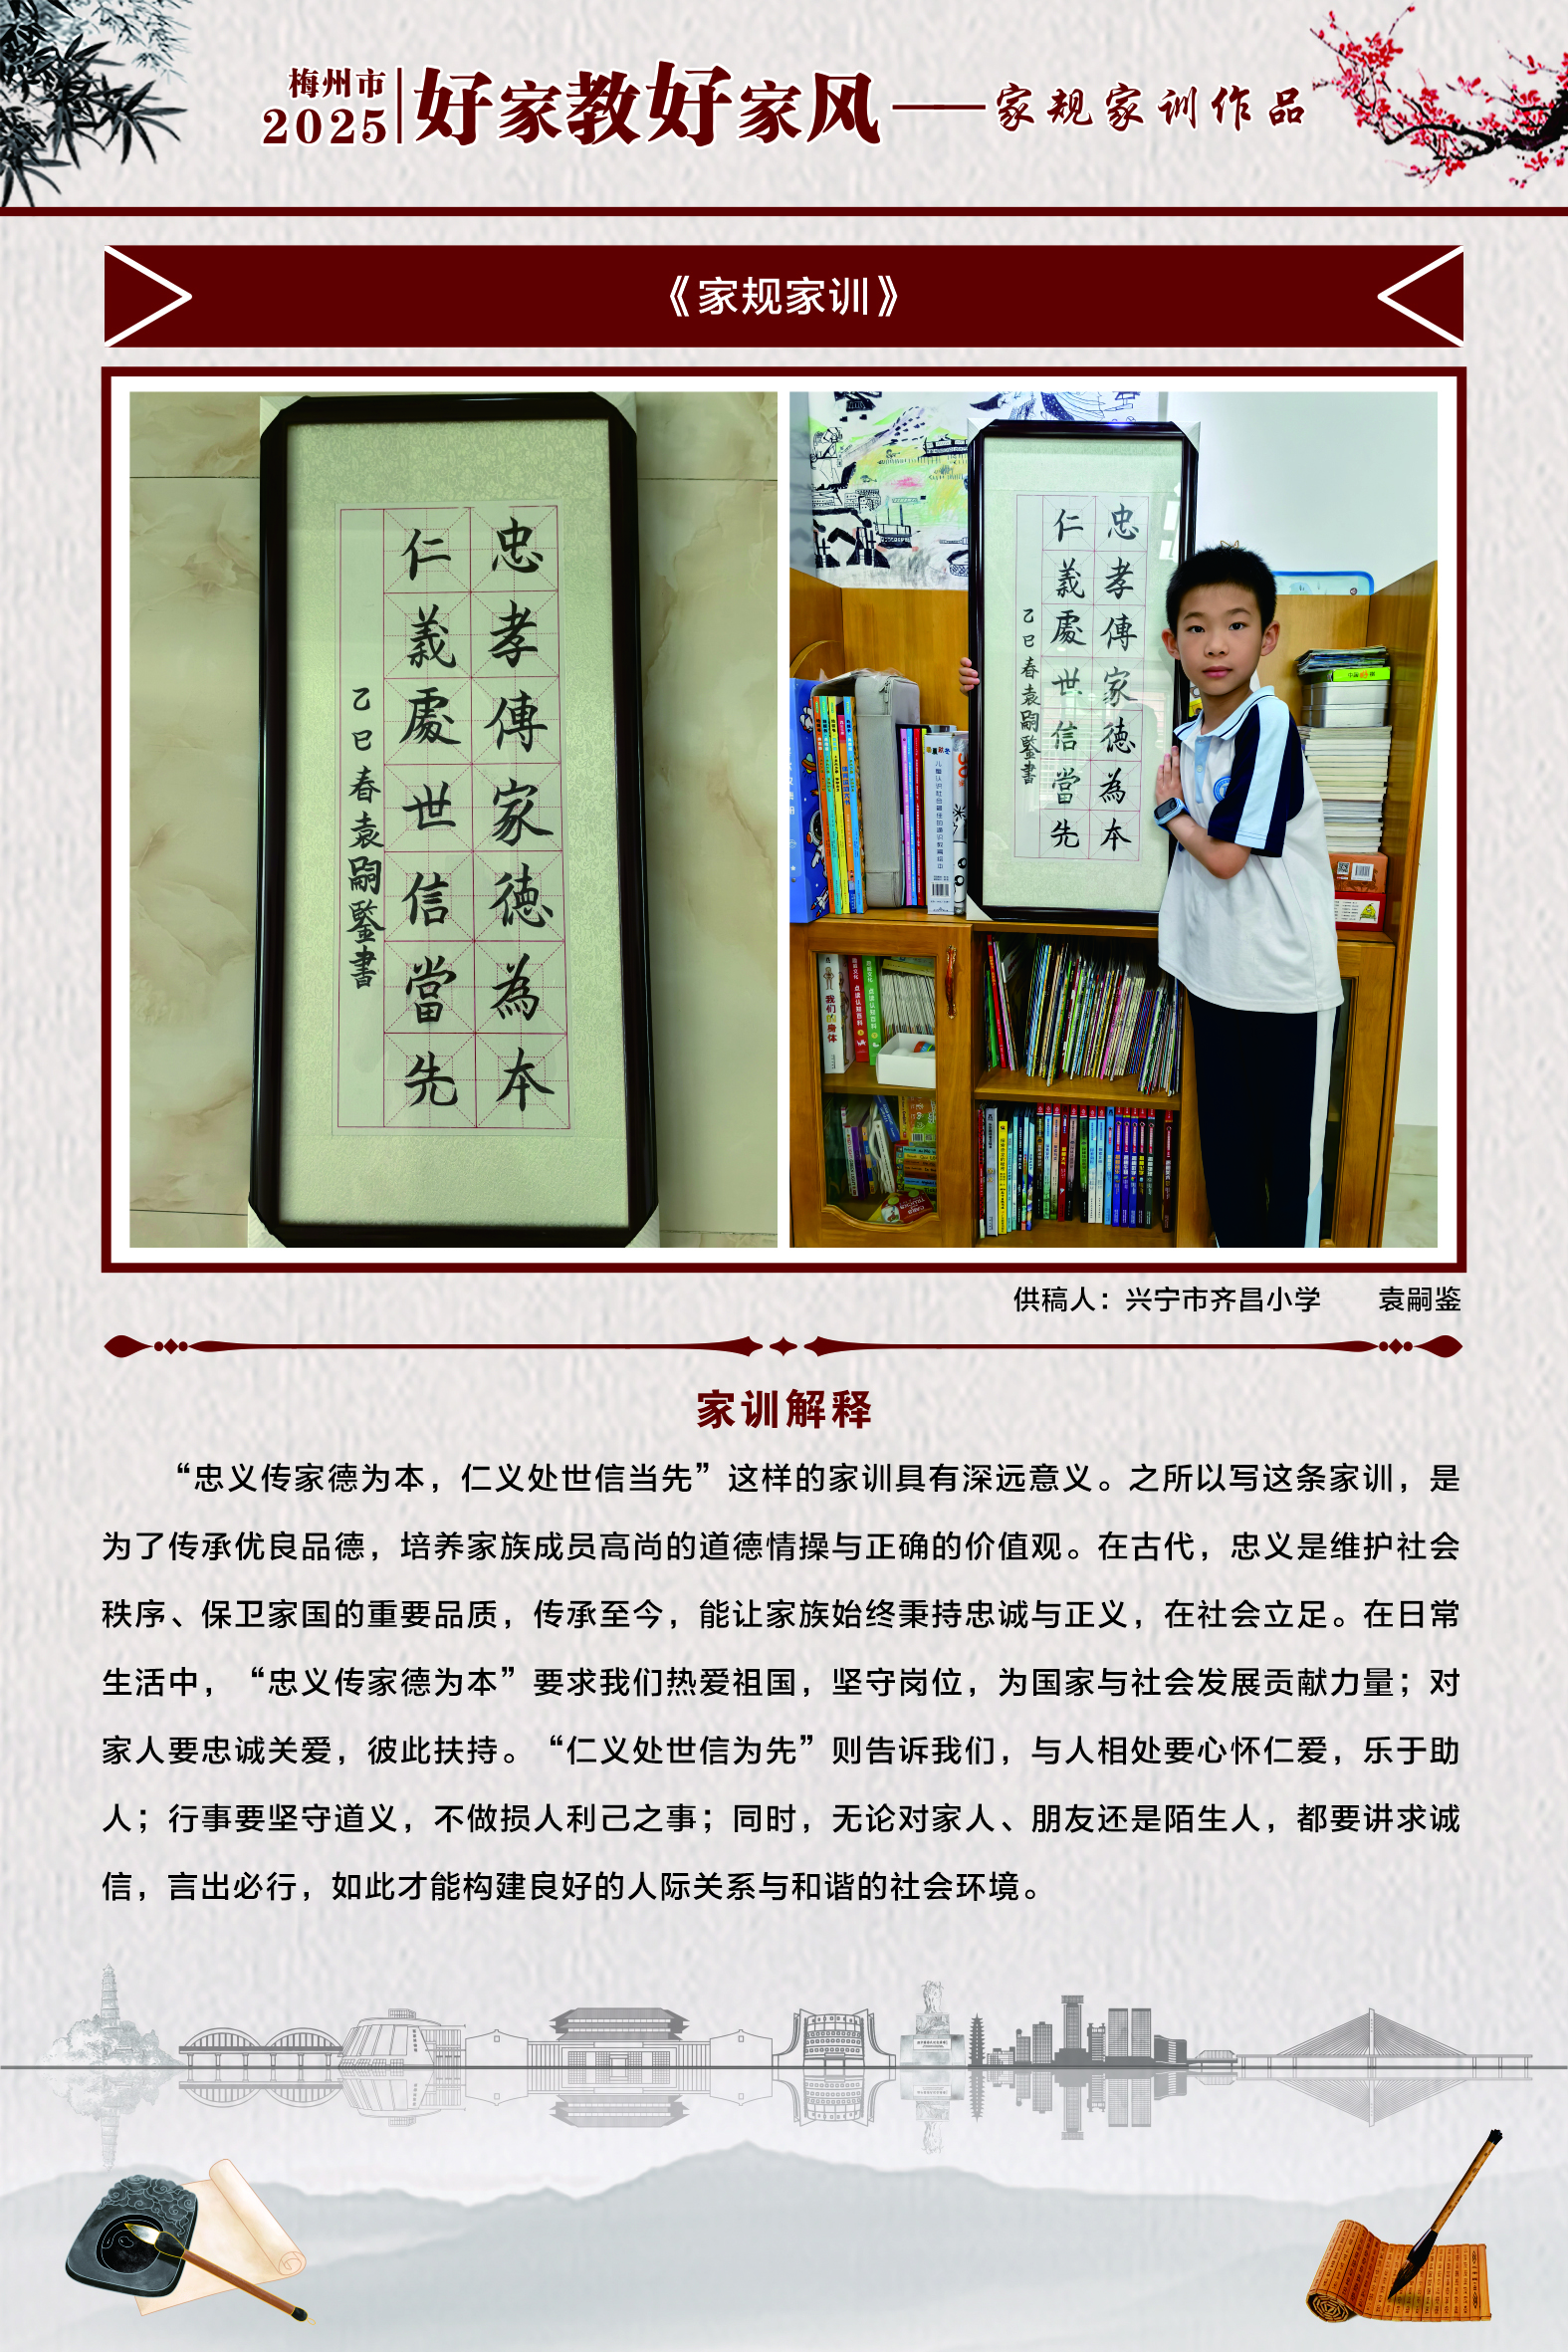 梅州市
2025
好家教好家风——家规家训作品
《家规家训》
忠孝傳家德為本
仁義處世信當先
乙巳春袁嗣鑒書
忠孝傳家德為本
仁義處世信當先
乙巳春袁嗣鑒書
我们的身体
点读认知百科
点读认知百科
供稿人：兴宁市齐昌小学 袁嗣鉴
家训解释
“忠义传家德为本，仁义处世信当先”这样的家训具有深远意义。之所以写这条家训，是
为了传承优良品德，培养家族成员高尚的道德情操与正确的价值观。在古代，忠义是维护社会
秩序、保卫家国的重要品质，传承至今，能让家族始终秉持忠诚与正义，在社会立足。在日常
生活中，“忠义传家德为本”要求我们热爱祖国，坚守岗位，为国家与社会发展贡献力量；对
家人要忠诚关爱，彼此扶持。“仁义处世信为先”则告诉我们，与人相处要心怀仁爱，乐于助
人；行事要坚守道义，不做损人利己之事；同时，无论对家人、朋友还是陌生人，都要讲求诚
信，言出必行，如此才能构建良好的人际关系与和谐的社会环境。